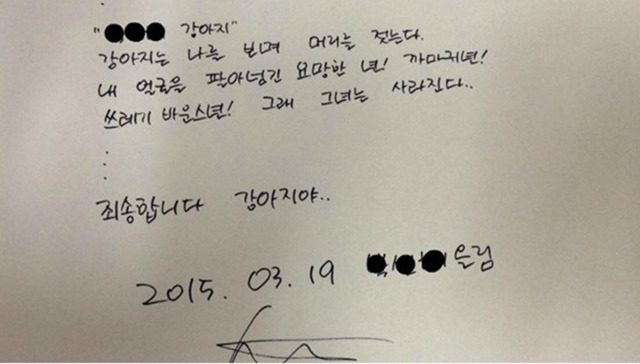 "●●● 강아지"
강아지는 나를 보며 머리를 젓는다.
내 얼굴을 팔아넘긴 요망한 년! 까마귀년!
쓰레기 바운스년! 그래 그녀는 사라진다..
.
.
.
죄송합니다 강아지야..
2015. 03. 19 ●●● 올림